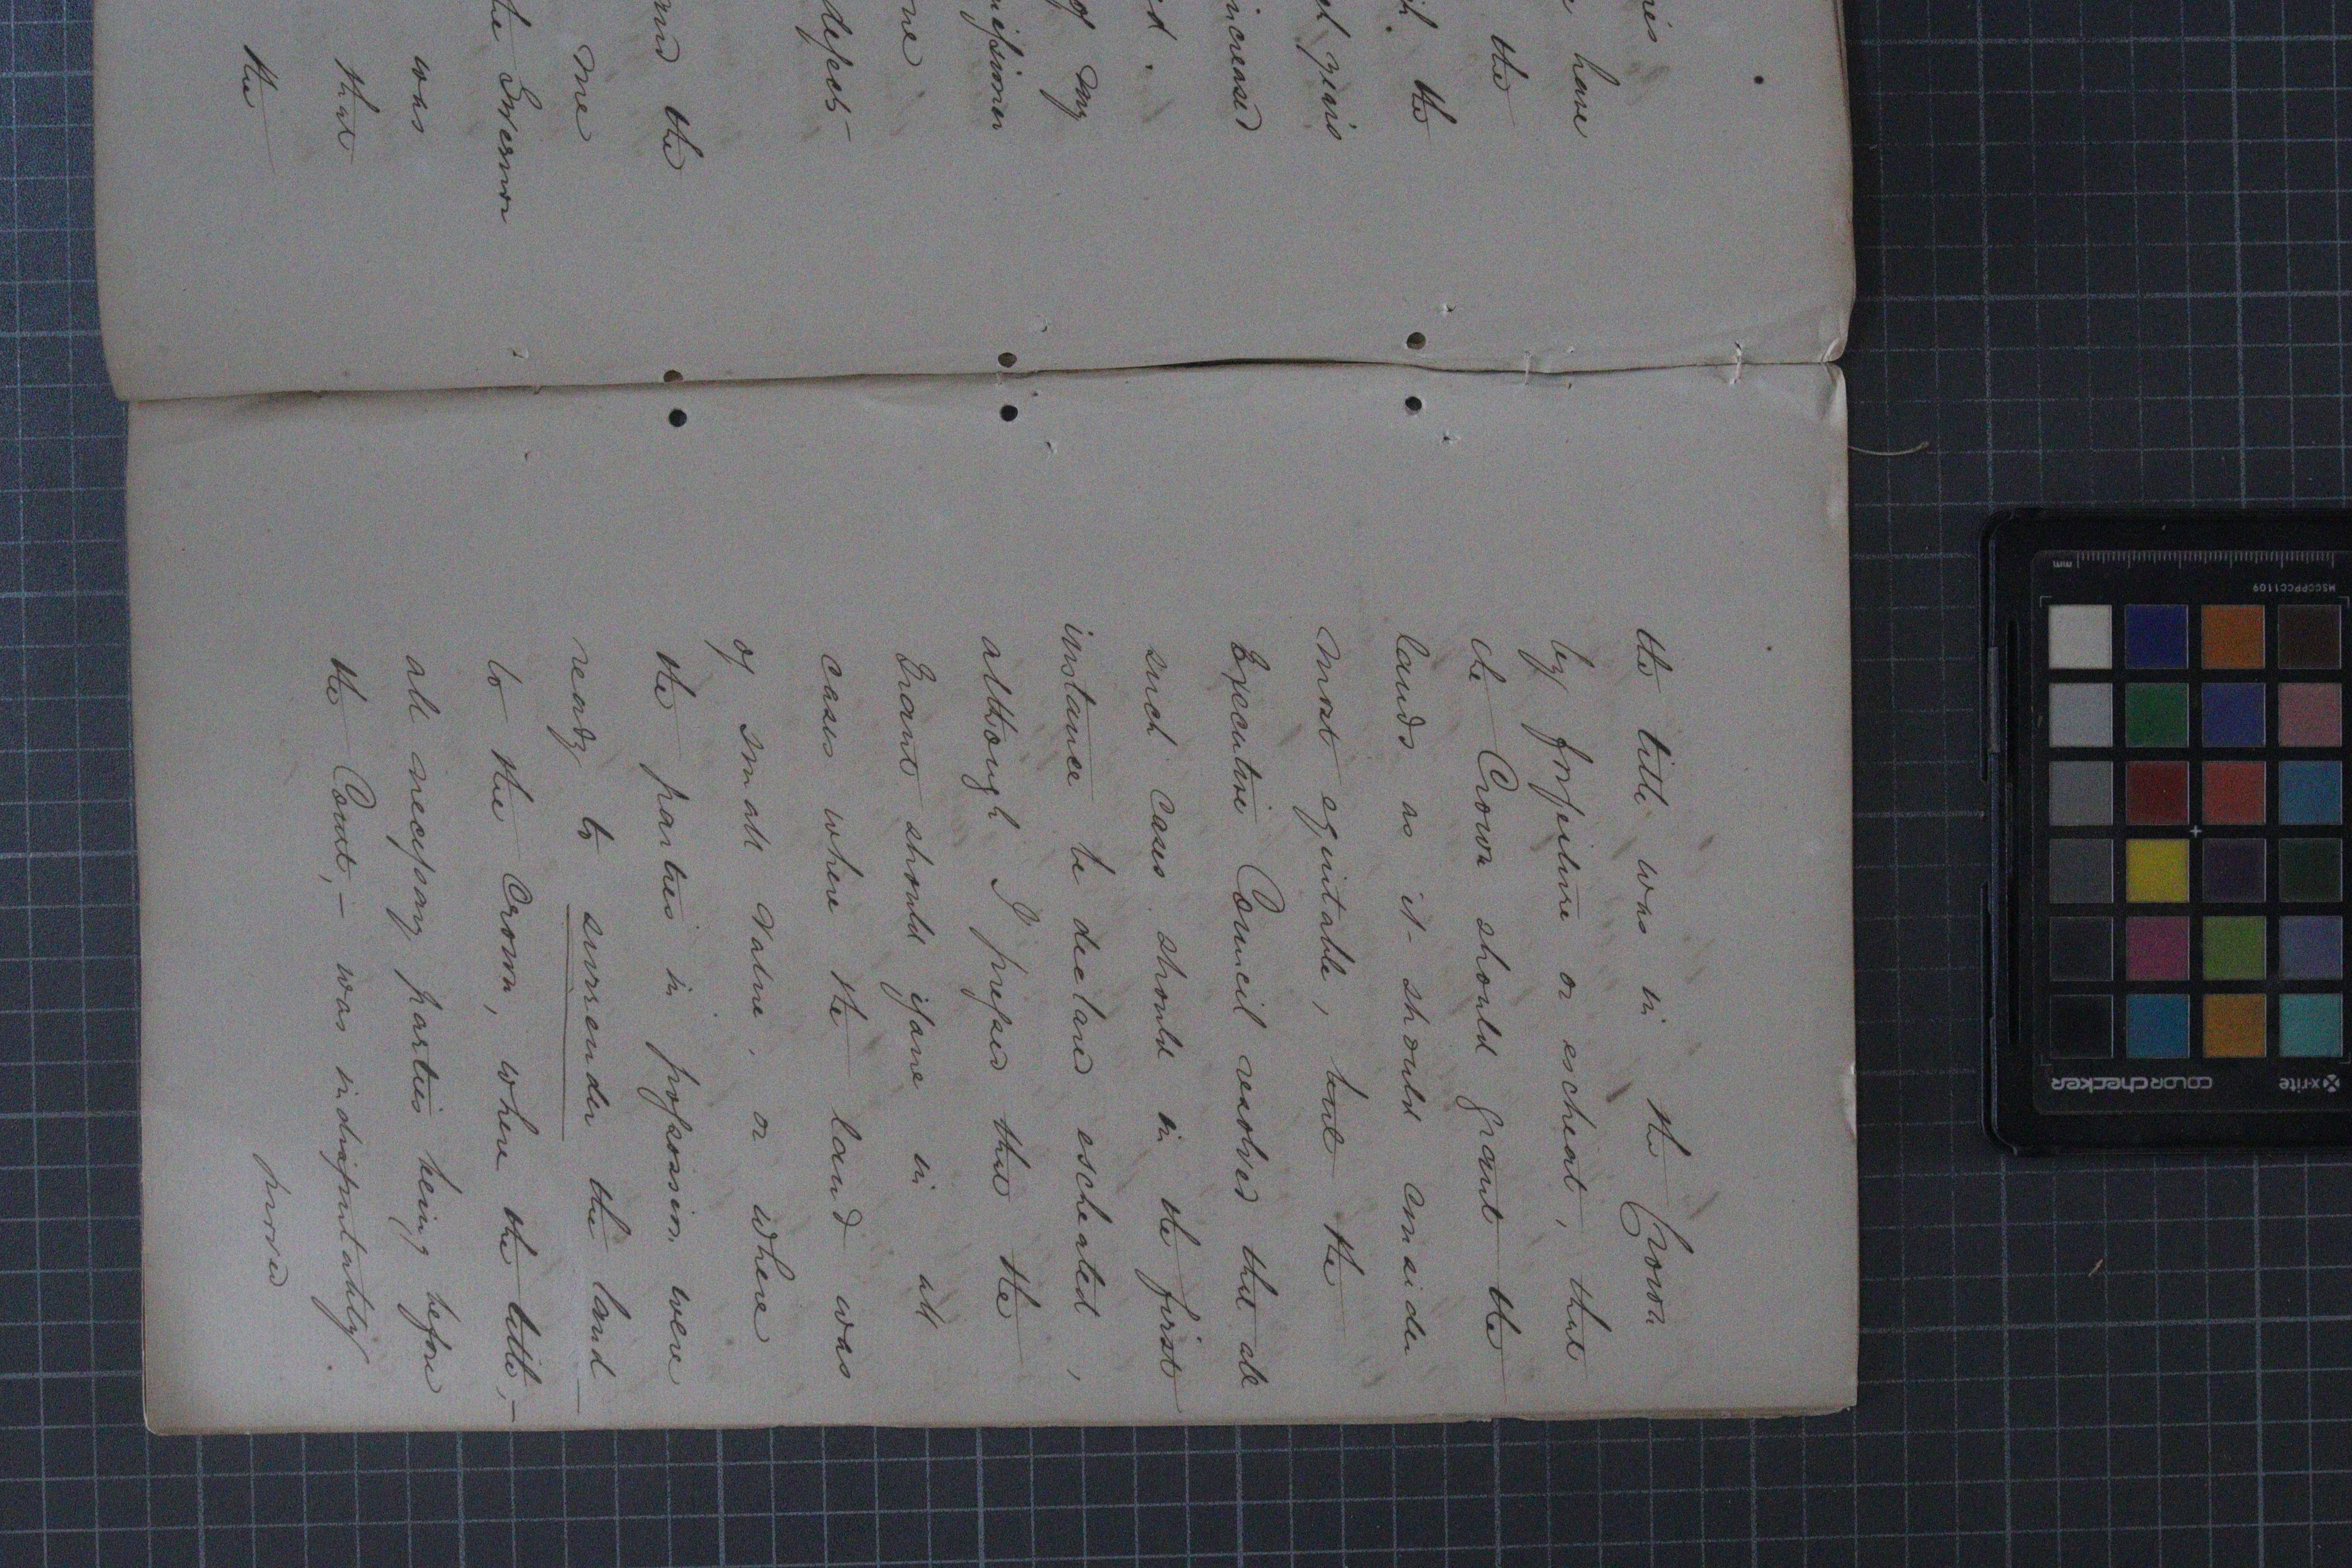 nis
have
the
the
el givis
increased
d.
of my
missioner
one
defect
and the
me
the Governor
was
that
the
the title was in the Crown
by forfeiture or escheat, that
the Crown should grant the
lands as it should consider
most equitable, but the
Executive Council resolved that all
such cases should in the first
instance be declared escheated,
although I prefer that the
Grant should issue in all
cases where the land was
of small value, or where
the parties in possession were
ready to surrender the land
to the Crown, where the title,—
all necessary parties being before
the Court,— was indisputably
proved
mm
MSCCPPCC1109
x-rite
COLORchecker